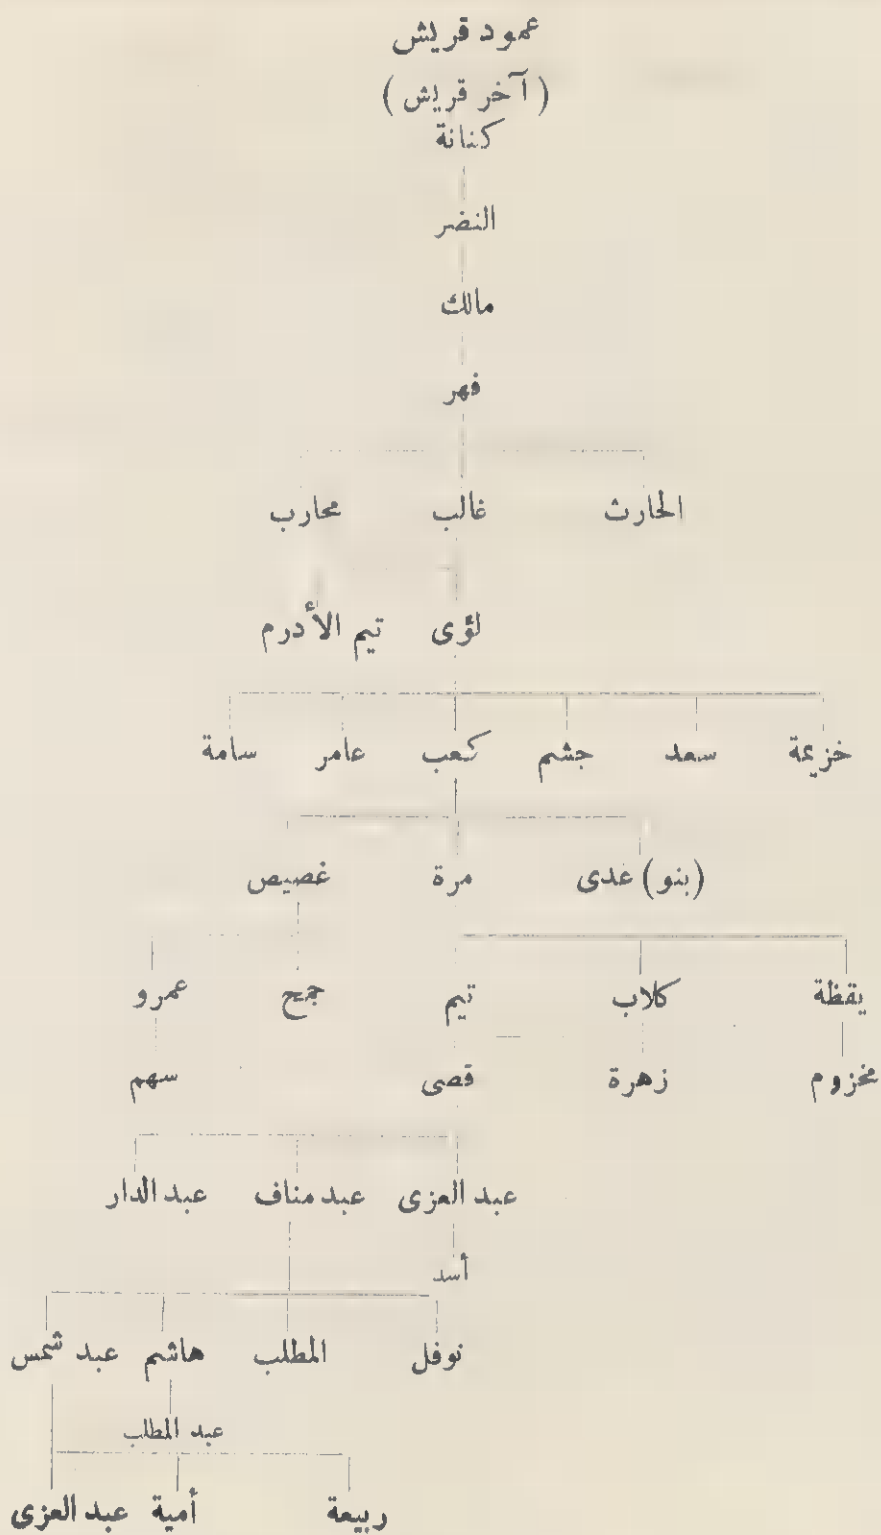 عمود قريش
(آخر قريش)
كنانة
النضر
مالك
فهر
الحارث غالب محارب
لؤى تيم الأدرم
خزيمة سعد جشم كعب عامر سامة
(بنو) غدى مرة غصيص
يقظة كلاب تيم جمح عمرو
مخزوم زهرة قصى سهم
عبد العزى عبد مناف عبد الدار
أسد
نوفل المطلب هاشم عبد شمس
عبد المطلب
ربيعة أمية عبد العزى